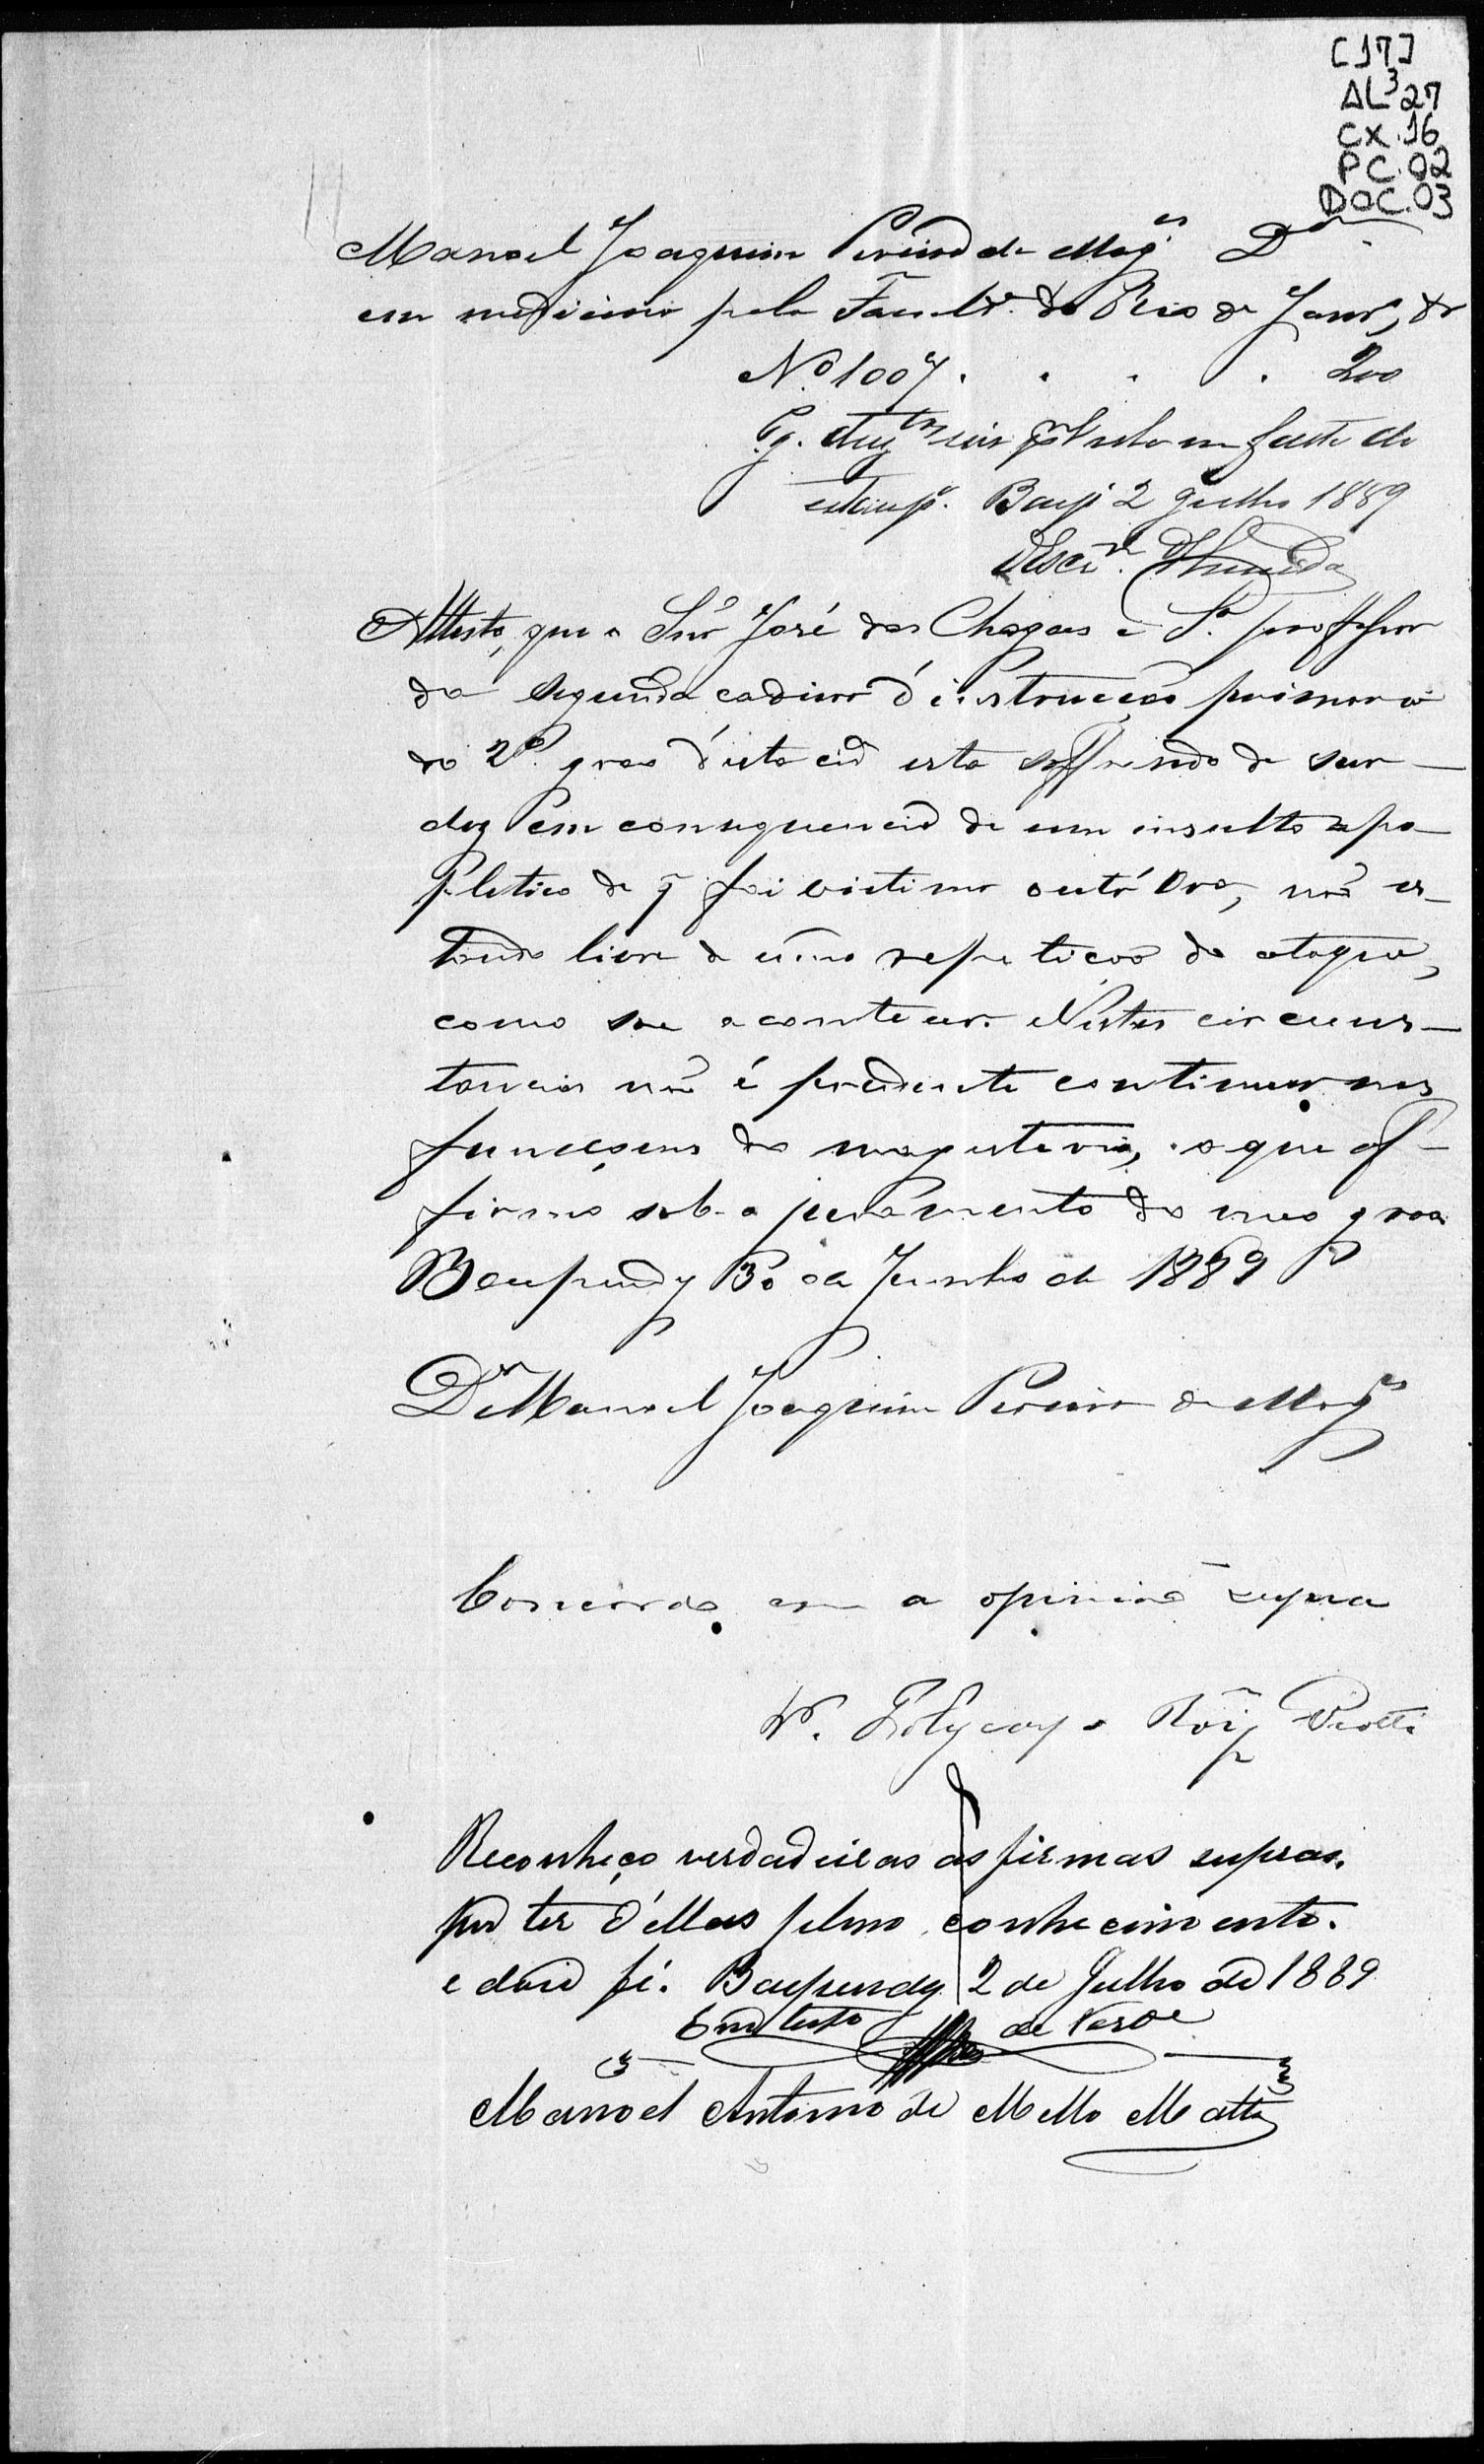 [17]
AL³27
CX.16
PC.02
DOC.03
Manoel Joaquim Pereira de Mag.es Dor
em medicina pela Facul.de do Rio de Janr.o, &
Nº 1007 . . . . 200
Pg. duz.tos reis por falta de
estamp.a Baep.i 2 Julho 1889
O Escr.m Almeida
Attesto, que o Snr José das Chagas e S.a professor
da segunda cadeira d'instrucção primaria
do 2º grao d'esta cid.e esta soffrendo de sur-
dez em consequencia de um insulto apo-
pletico de q̃ foi victima outr'ora, não es-
tando livre de uma repetição do ataque,
como soe acontecer. Nestas circums-
tancias não é prudente continuar nas
funcçoens do magisterio, o que af-
firmo sob o juramento do meo grao
Baependy 30 de Junho de 1889
Dr Manoel Joaquim Pereira de Mag.es
Concordo com a opinião supra
Dr. Polycarpo Roiz Viotti
Reconheço verdadeiras as firmas supras.
por ter d'ellas pleno conhecimento.
e dou fé. Baependy 2 de Julho de 1889
Em testo de verde
Manoel Antonio de Mello Mattos